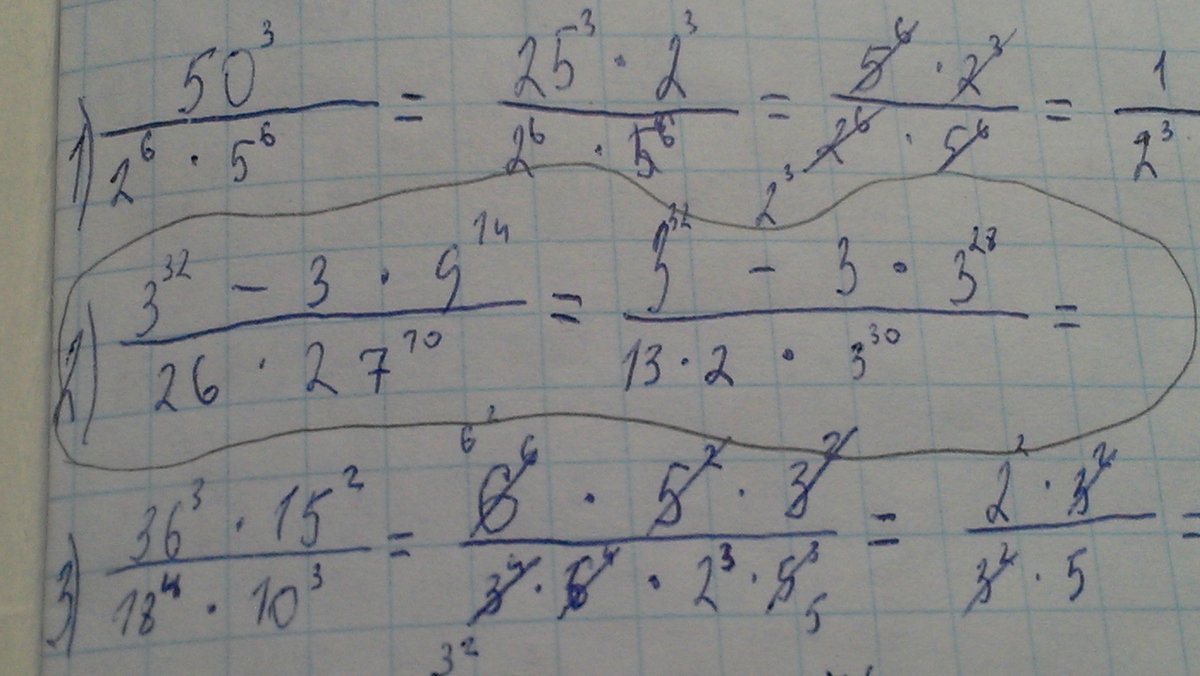 1) 50³ / (2⁶ · 5⁶) = (25³ · 2³) / (2⁶ · 5⁶) = (5⁶ · 2³) / (2⁶ · 5⁶) = 1 / 2³
2³
2) (3³² − 3 · 9¹⁴) / (26 · 27¹⁰) = (3³² − 3 · 3²⁸) / (13 · 2 · 3³⁰) =
6²
3) (36³ · 15²) / (18⁴ · 10³) = (6⁶ · 5² · 3²) / (3⁴ · 6⁴ · 2³ · 5³) = (2² · 3²) / (3² · 5) =
5
3²